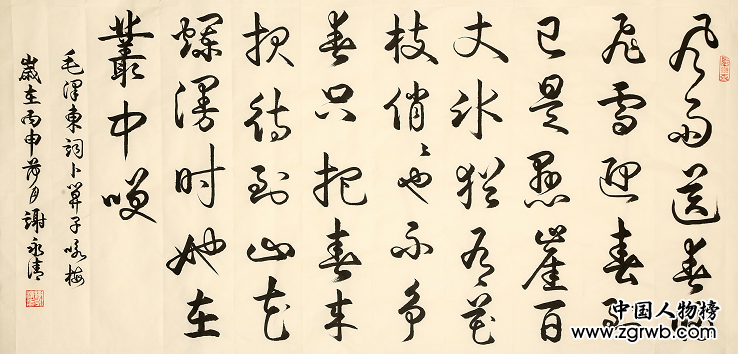 风雨送春归
飞雪迎春到
已是悬崖百
丈冰犹有花
枝俏々也不争
春只把春来
报待到山花
烂漫时她在
叢中咲
毛澤東詞卜算子咏梅
歲在丙申月謝永清
中国人物榜
www.zgrwb.com